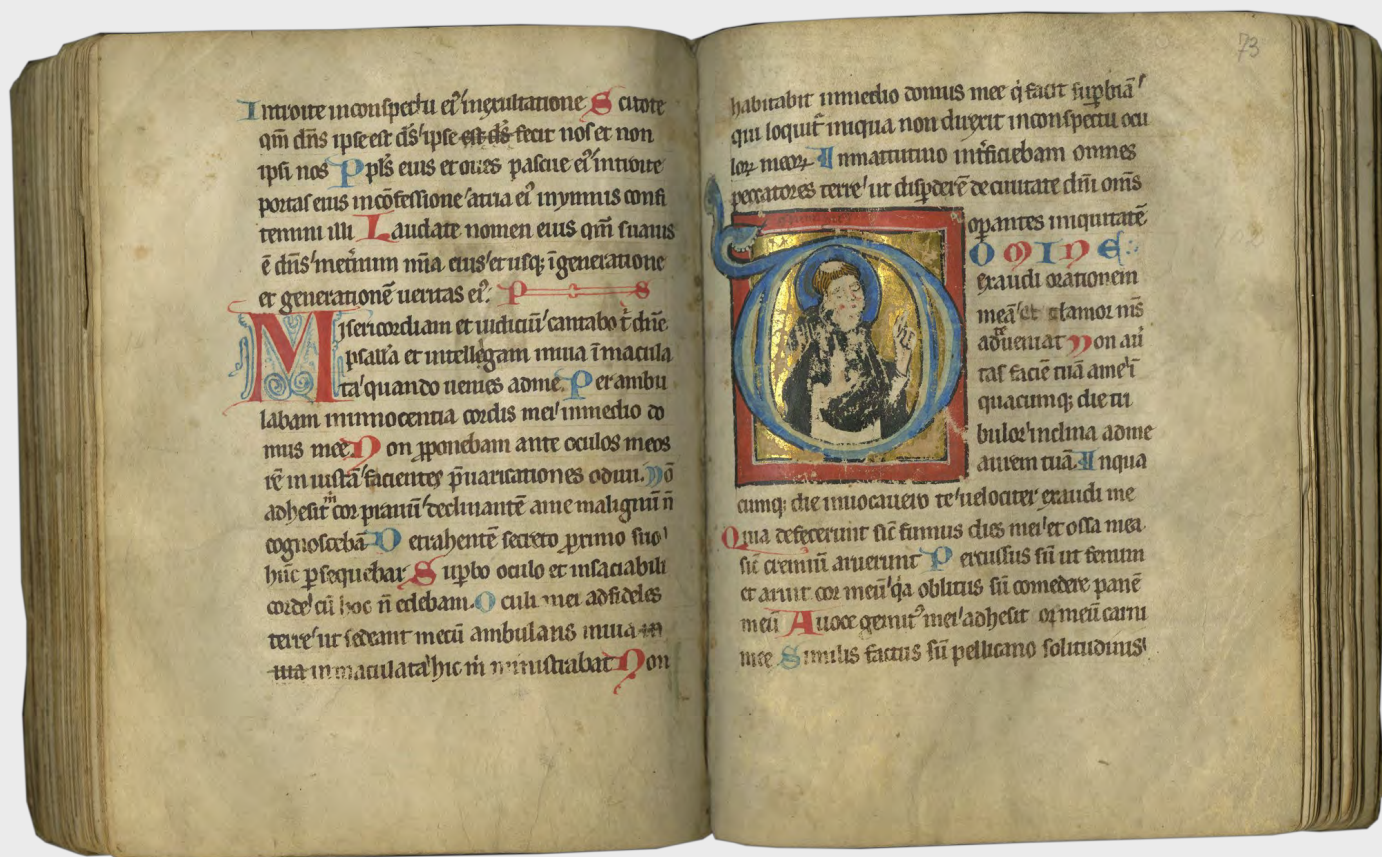 Introite inconspectu ei᾽ inexultatione Scitote
qm̄ dn̄s ipse est ds̄ ipse est ds̄ fecit nos et non
ipsi nos Ppl̄s eius et oues pascue ei᾽ introite
portas eius incōfessione atria ei᾽ inymnis confi
temini illi Laudate nomen eius qm̄ suauis
ē dn̄s inet̄num mīa eius et usq; ī generatione
et generationē ueritas ei᾽. P S
Misericordiam et iudiciū cantabo t̄ dn̄e
psallā et intellegam inuia īmacula
ta quando uenies adme. Perambu
labam ininnocentia cordis mei inmedio do
mus mee Non ꝓponebam ante oculos meos
rē iniustā facientes p̄uaricationes odiui. Nō
adhesit m̄ cor prauū declinantē ame malignū n̄
cognoscebā Detrahentē secreto ꝓximo suo
hūc ꝑsequebar Suꝑbo oculo et insaciabili
corde cū hoc n̄ edebam. Oculi mei adfideles
terre ut sedeant mecū ambulans inuia in
uia inmaculata hic m̄ ministrabat Non
73
habitabit inmedio domus mee q̇ facit suꝑbiā
qui loquit̄ iniqua non direxit inconspectu ocu
loꝝ meoꝝ Inmatutino int̄ficiebam omnes
peccatores terre ut disꝑderē deciuitate dn̄i om̄s
oꝑantes iniquitatē
OMINE
exaudi orationem
meā et clamor m̄s
adteueniat Non au̅
tas faciē tuā ame ī
quacumq; die tri
bulor inclina adme
aurem tuā Inqua
cumq; die inuocauero te uelociter exaudi me
Quia defecerunt sic̄ fumus dies mei et ossa mea
sic̄ cremiū aruerunt Percussus sū ut fenum
et aruit cor meū q̇a oblitus sū comedere panē
meū Auoce gemit᾽ mei adhesit os meū carni
mee Similis factus sū pellicano solitudinis